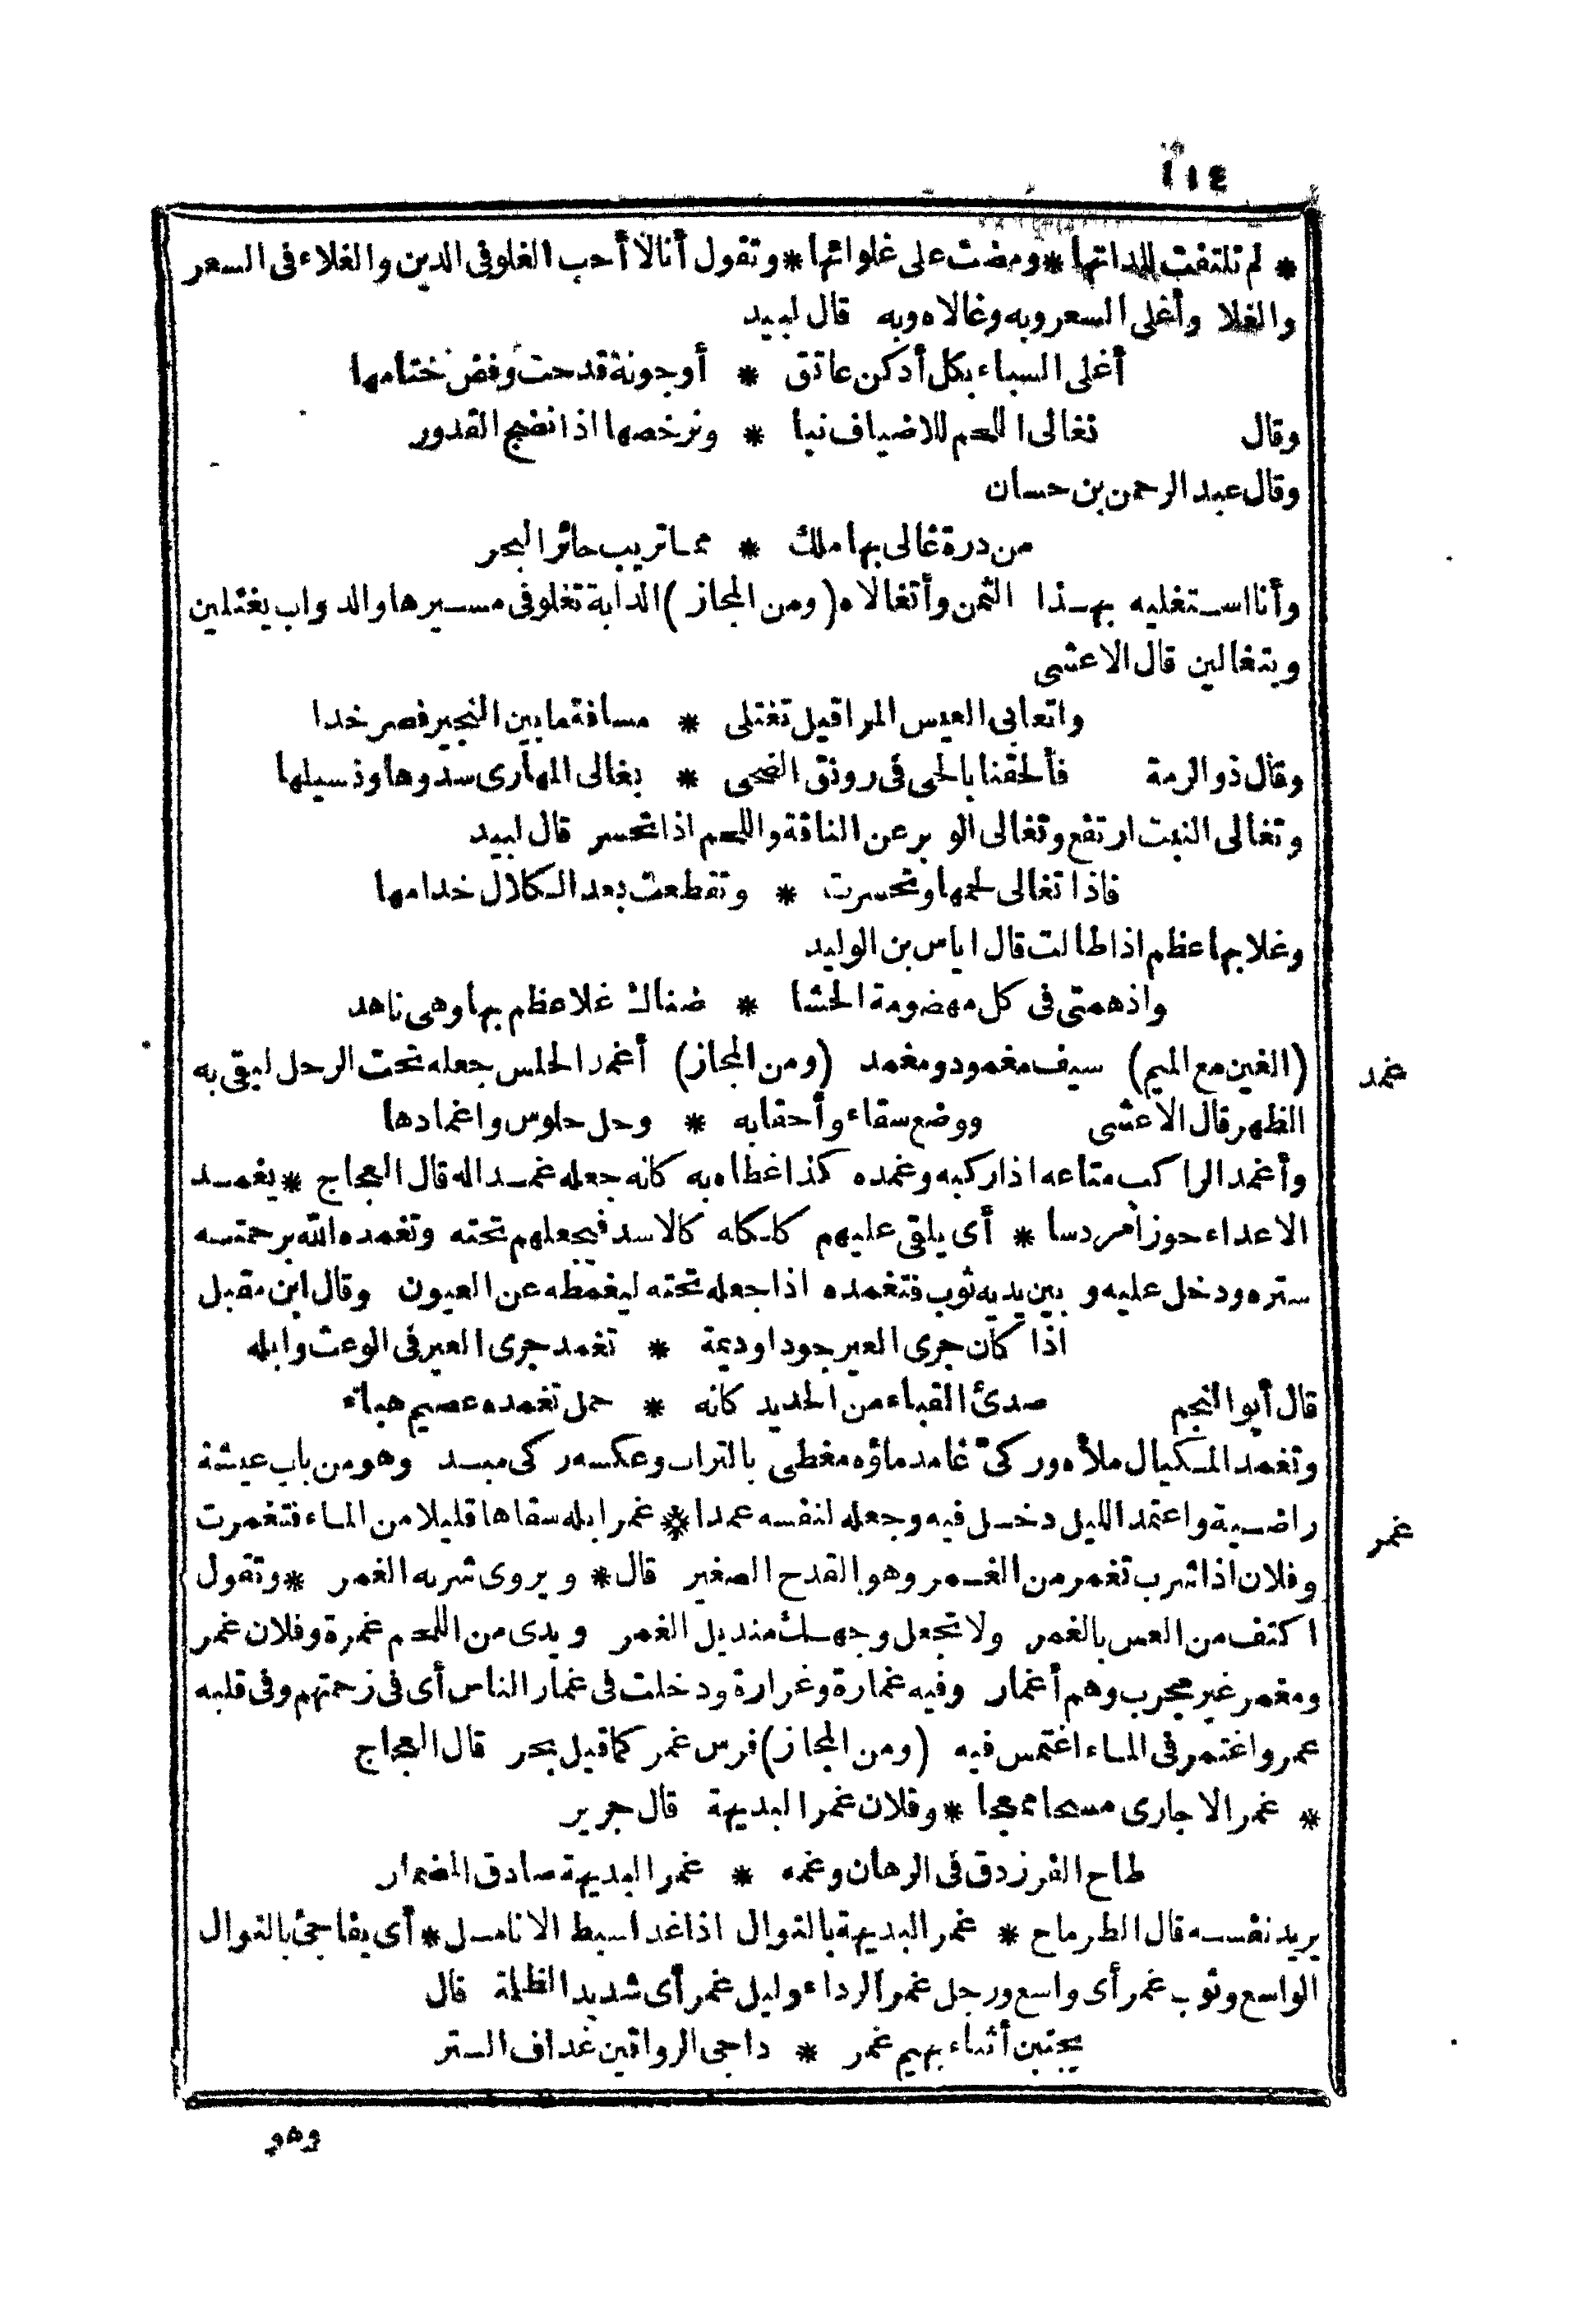 ١١٤
* لم تلتفت للداتها * ومضت على غلوائها * وتقول أنا لا أحب الغلو في الدين والغلاء في السعر
والغلا وأغلى السعر وبه وغالاه وبه قال لبيد
أغلى السباء بكل أدكن عاتق * أو جونة قدحت وفض ختامها
وقال نغالى اللحم للاضياف نيا * ونرخصها اذا نضج القدور
وقال عبد الرحمن بن حسان
من درة غالى بها ملك * مما تريب حائر البحر
وأنا استغليه بهذا الثمن وأتغالاه (ومن المجاز) الدابة تغلو في مسيرها والدواب يغتلين
ويتغالين قال الاعشى
واتعابى العيس المراقيل تغتلى * مسافة ما بين النجير فصرخدا
وقال ذو الرمة فألحقنا بالحى في رونق الضحى * بغالى المهارى سدوها ونسيلها
وتغالى النبت ارتفع وتغالى الوبر عن الناقة واللحم اذا تحسر قال لبيد
فاذا تغالى لحمها وتحسرت * وتقطعت بعد الكلال خدامها
وغلا بها عظم اذا طالت قال اياس بن الوليد
واذ همتى في كل مهضومة الحشا * ضناك غلا عظم بها وهى ناهد
غمد
(الغين مع الميم) سيف مغمود ومغمد (ومن المجاز) أغمد الحلس جعله تحت الرحل ليقى به
الظهر قال الاعشى ووضع سقاء وأحقابه * وحل حلوس واغمادها
وأغمد الراكب متاعه اذا ركبه وغمده كذا غطاه به كانه جعله غمدا له قال العجاج * يغمد
الاعداء حوزا مردسا * أى يلقى عليهم كلكله كالاسد فيجعلهم تحته وتغمده الله برحمته
ستره ودخل عليه وبين يديه ثوب فتغمده اذا جعله تحته ليغطه عن العيون وقال ابن مقبل
اذا كان جرى العير جودا وديمة * تغمد جرى العير في الوعث وابله
قال أبو النجم صدئ القباء من الحديد كانه * حمل تغمده عصيم هناء
وتغمد المكيال ملأه وركىّ غامد ماؤه مغطى بالتراب وعكسه ركى مبد وهو من باب عيشة
راضية واغتمد الليل دخل فيه وجعله لنفسه غمدا * غمر ابله سقاها قليلا من الماء فتغمرت
غمر
وفلان اذا شرب تغمر من الغمر وهو القدح الصغير قال * ويروى شربه الغمر * وتقول
اكتف من العس بالغمر ولا تجعل وجهك منديل الغمر ويدى من اللحم غمرة وفلان غمر
ومغمر غير مجرب وهم أغمار وفيه غمارة وغرارة ودخلت في غمار الناس أى في زحمتهم وفي قلبه
غمر واغتمر في الماء اغتمس فيه (ومن المجاز) فرس غمر كما قيل بحر قال العجاج
* غمر الاجارى مسحا ممعجا * وفلان غمر البديهة قال جرير
طاح الفرزدق في الرهان وغمه * غمر البديهة صادق المضمار
يريد نفسه قال الطرماح * غمر البديهة بالنوال اذا غدا سبط الانامل * أى يفاجئ بالنوال
الواسع وثوب غمر أى واسع ورجل غمر الرداء وليل غمر أى شديد الظلمة قال
يجتبن أثناء بهيم غمر * داجى الرواقين غداف الستر
وهو